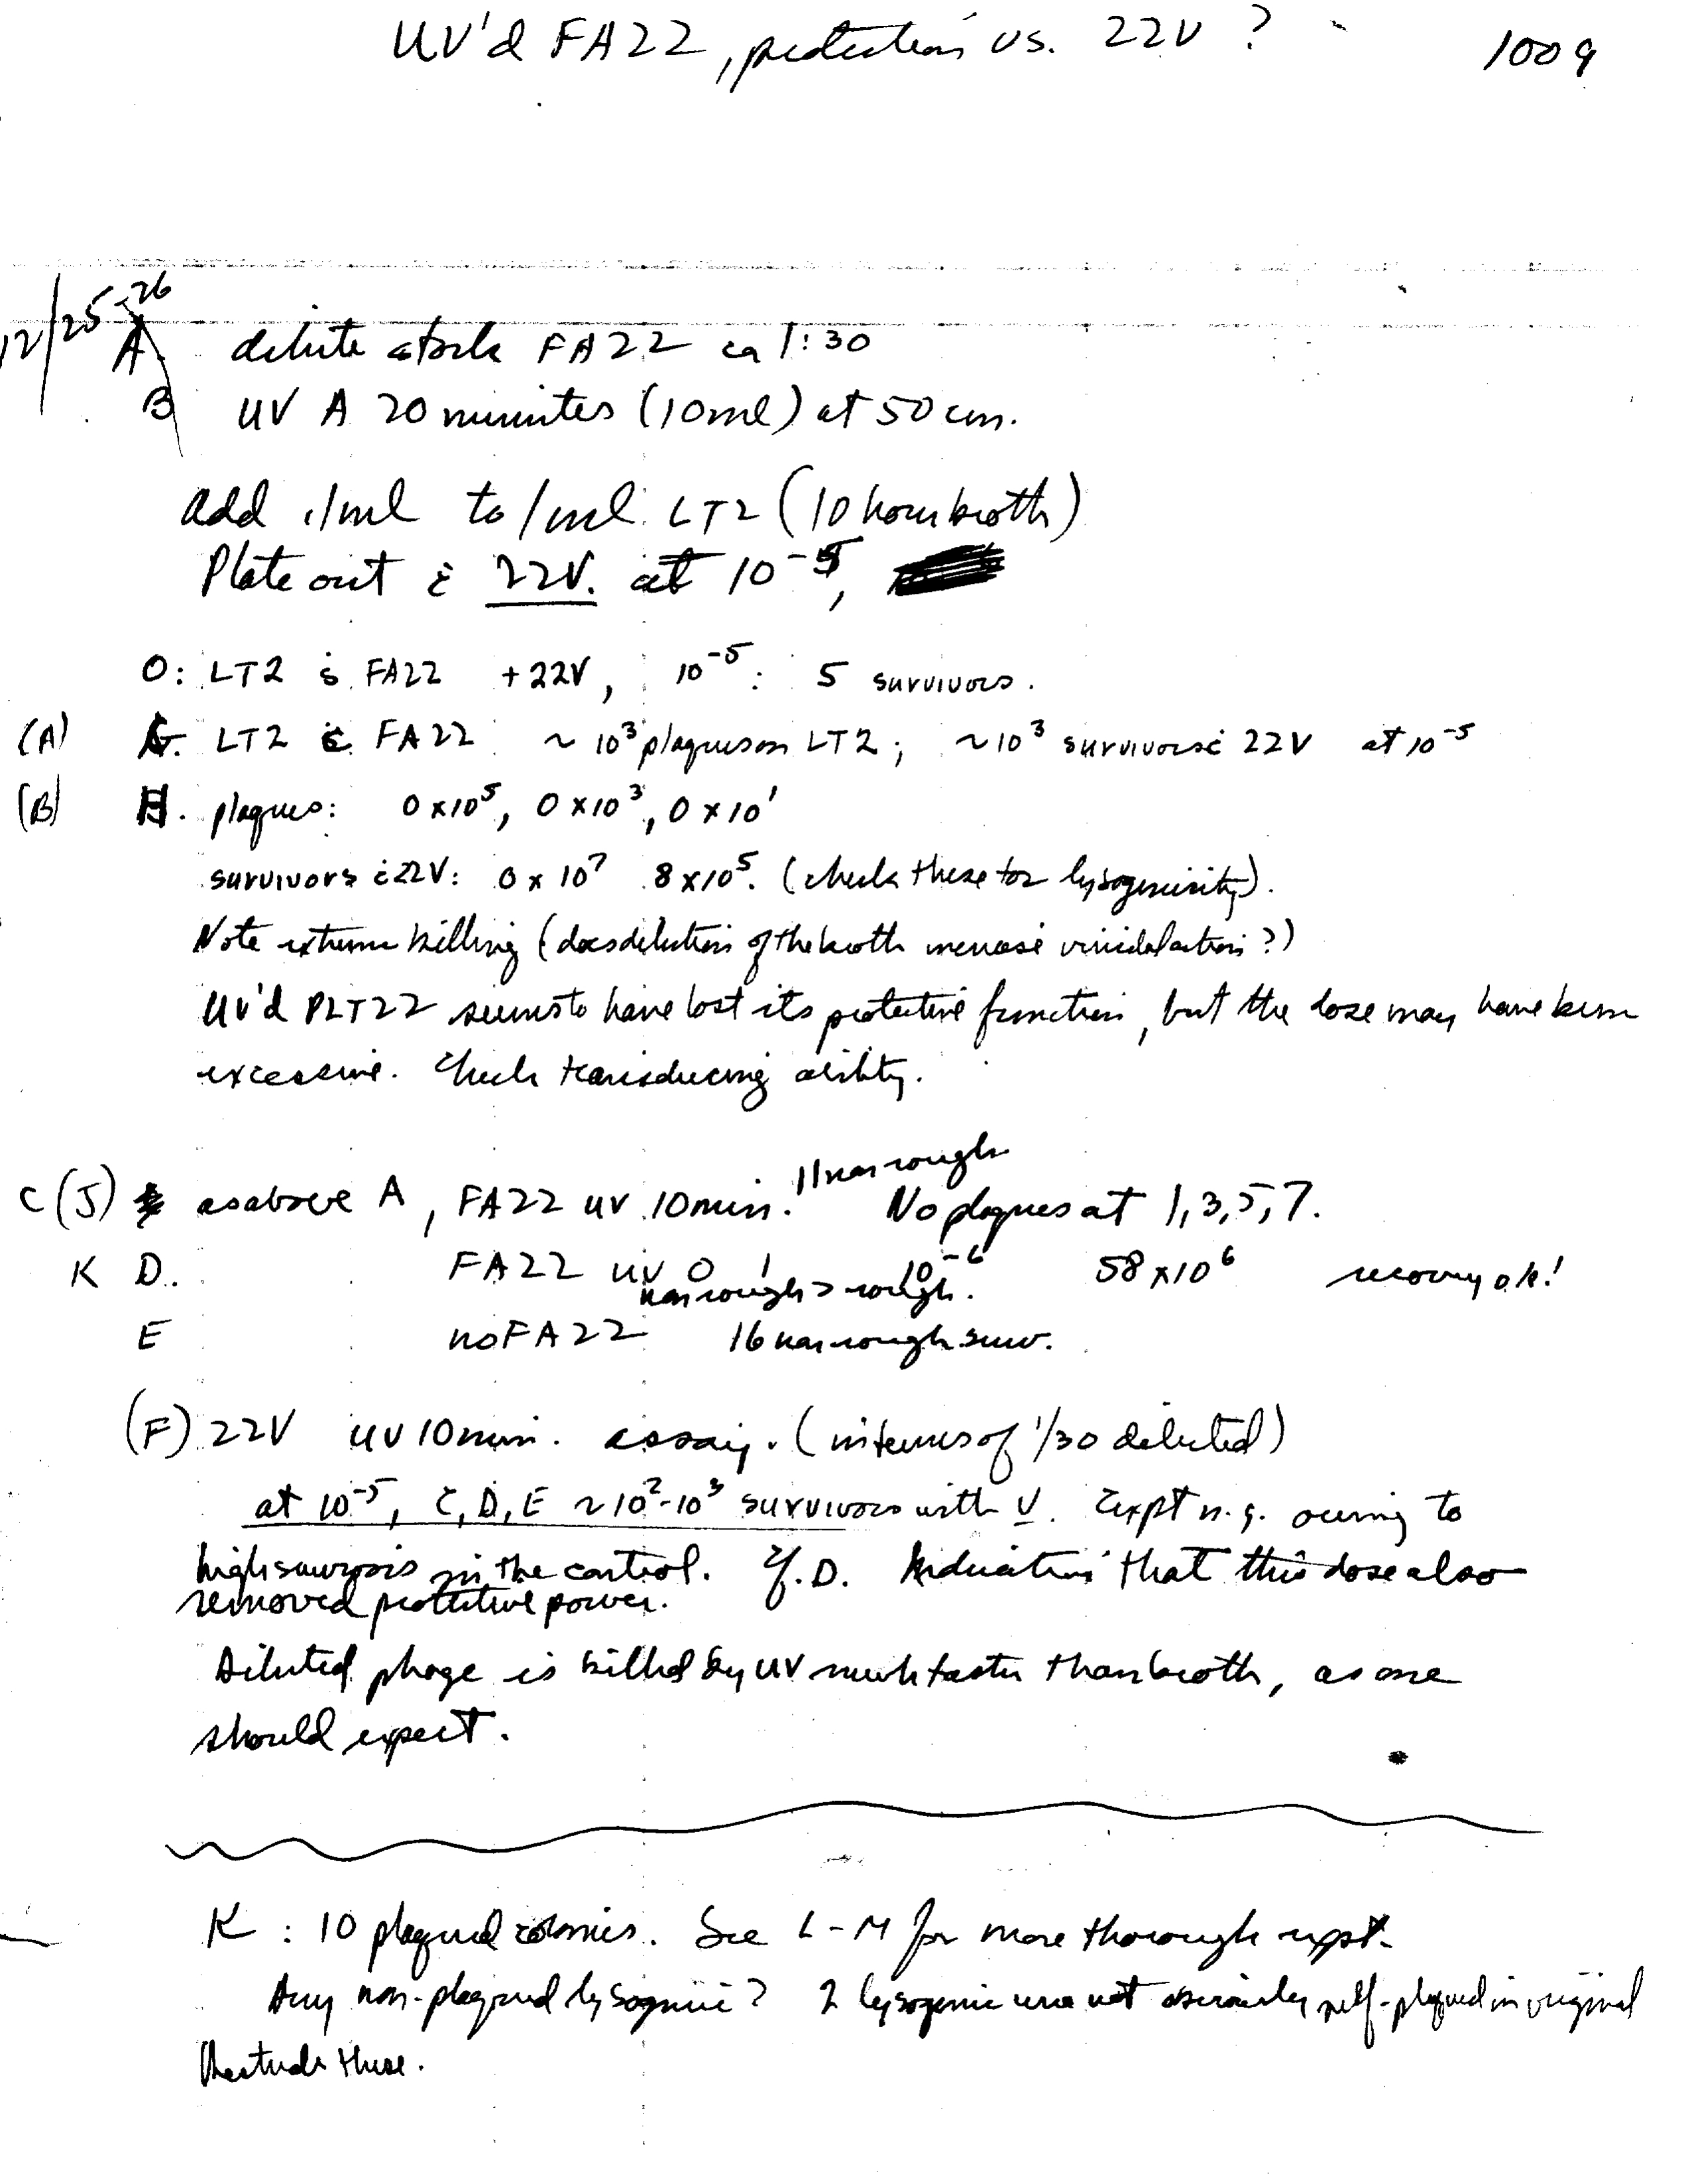 UV'd FA22, protection vs. 22V ? 1009
12/25-26
A. dilute stock FA22 ca 1:30
B UV A 20 minutes (10ml) at 50 cm.
Add .1ml to 1ml. LT2 (10 hour broth)
Plate out c̄ 22V. at 10⁻⁵,
O: LT2 s̄ FA22 +22V, 10⁻⁵: 5 survivors.
(A) G. LT2 c̄ FA22 ~ 10³ plaques on LT2; ~10³ survivors c̄ 22V at 10⁻⁵
(B) H. plaques: 0 x 10⁵, 0 x 10³, 0 x 10¹
survivors c̄ 22V: 0 x 10⁷ 8 x 10⁵. (check these for lysogenicity).
Note extreme killing (does dilution of the broth increase viricidal action?)
UV'd PLT22 seems to have lost its protective function, but the dose may have been
excessive. Check transducing ability.
C (J) as above A, FA22 UV 10 min. 11 non rough No plaques at 1, 3, 5, 7.
K D. FA22 UV 0 10⁻⁶ 58 x 10⁶ recovery ok!
non rough > rough.
E no FA22 16 non rough surv.
(F) 22V UV 10 min. assay. (in terms of 1/30 diluted)
at 10⁻⁵, C, D, E ~10²-10³ survivors with V. Expt n.g. owing to
high survivors in the control. Indication that this dose also
removed protective power.
Diluted phage is killed by UV much faster than broth, as one
should expect.
K : 10 plaqued colonies. See L-M for more thorough expt.
Any non-plaqued lysogenic? 2 lysogenic were not obviously self-plaqued in original
Restreak these.